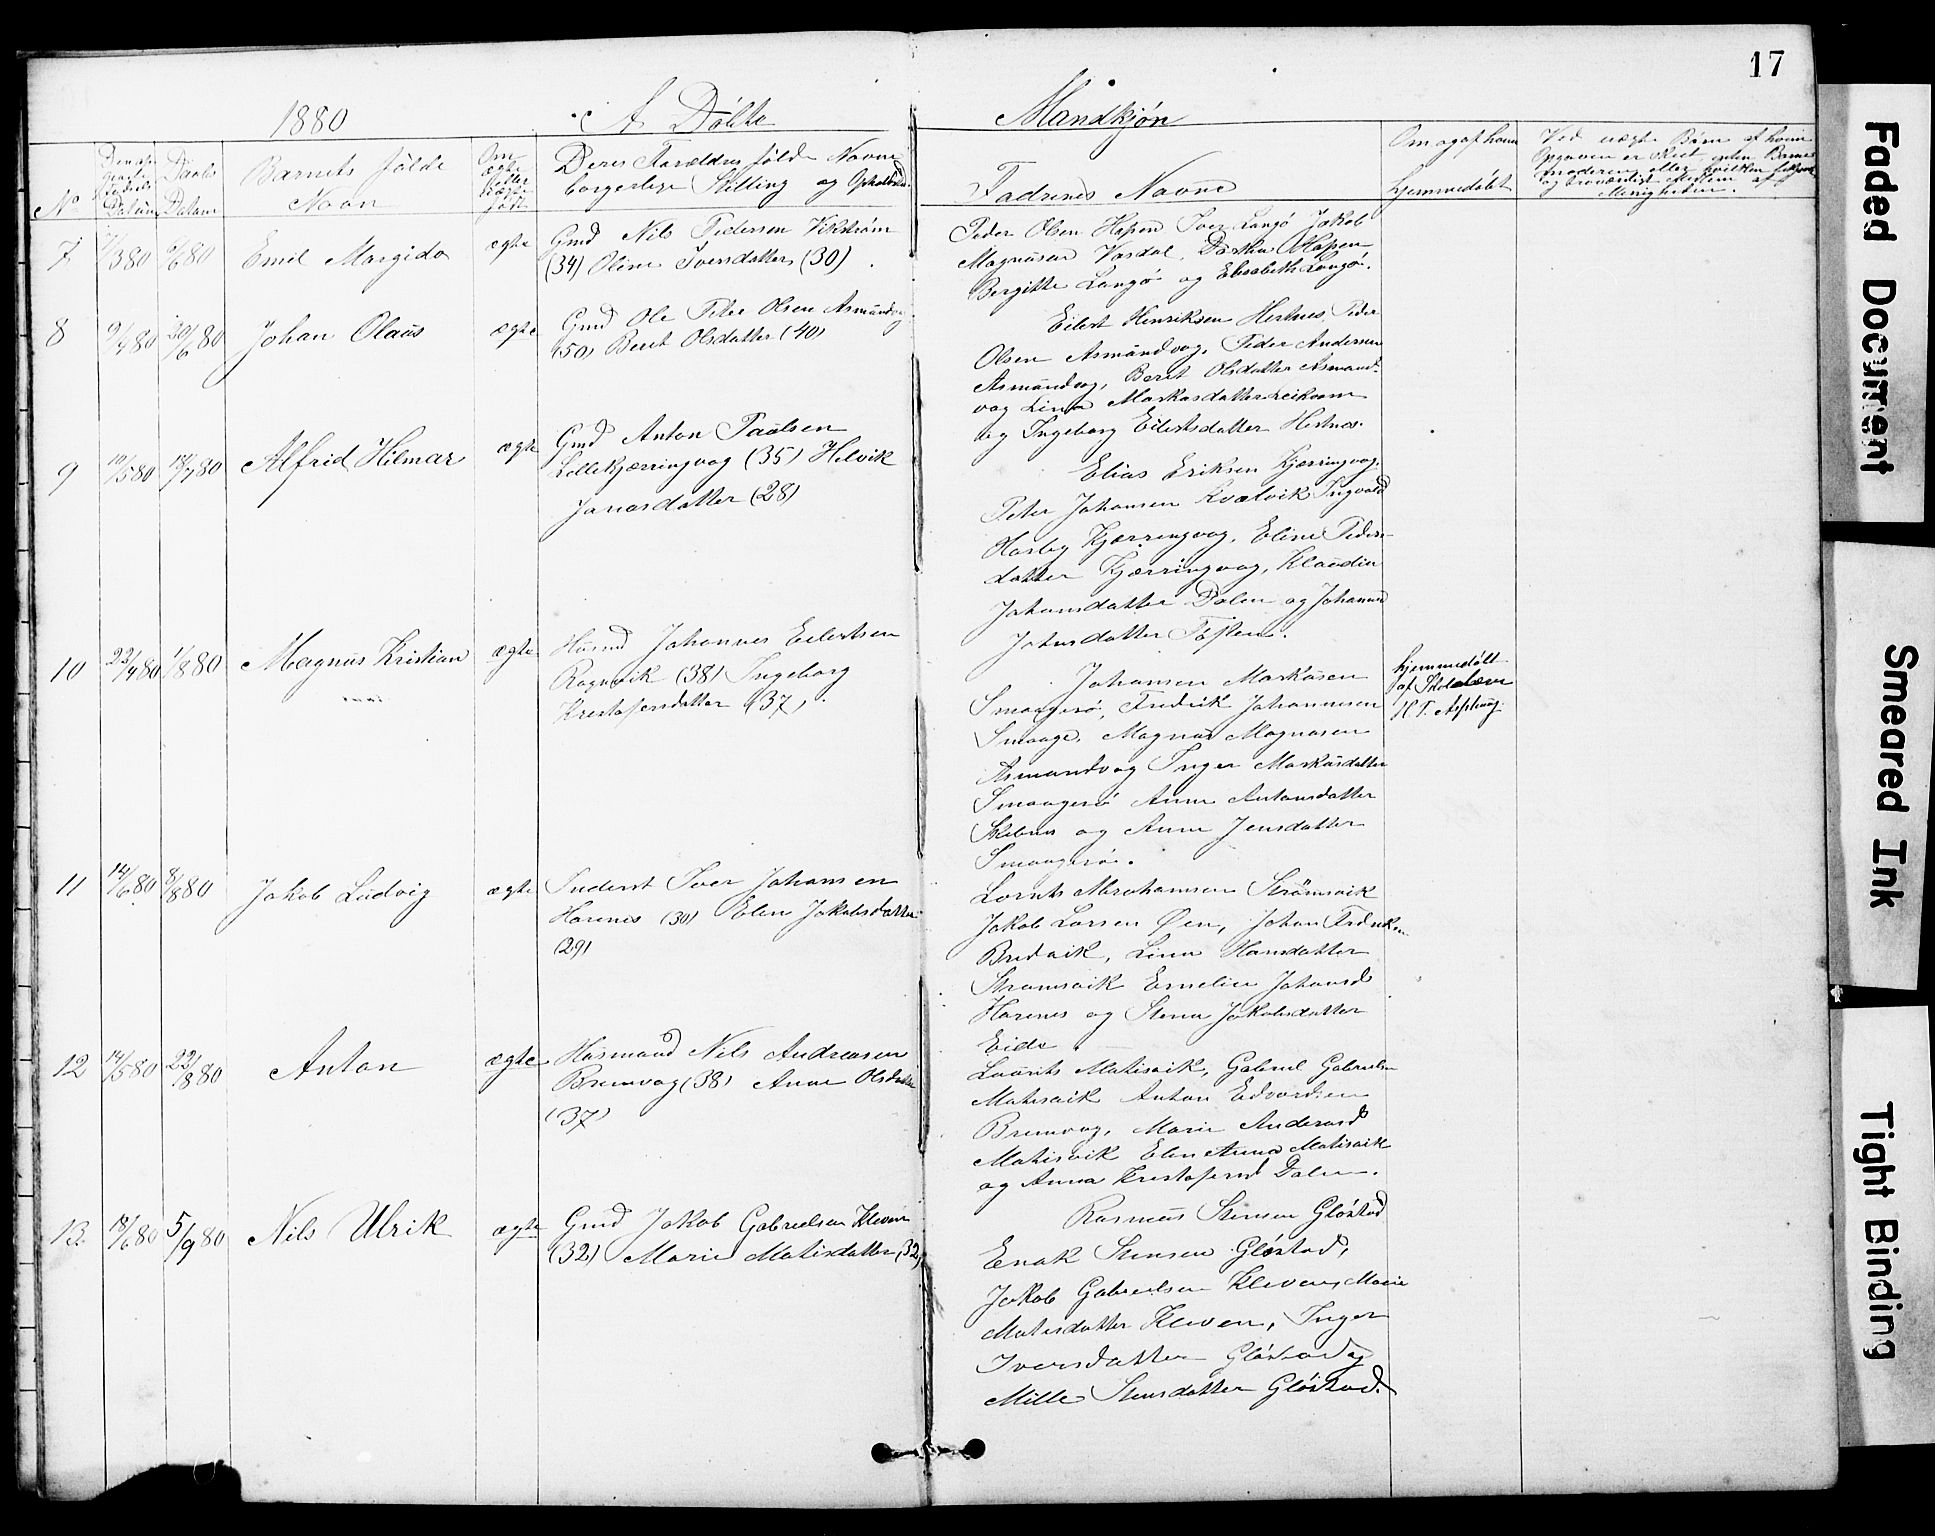 17
1880 A Døbte Mandkjøn
No
Datum
Daabs Datum
Barnets fulde Navn
Om ægte eller uægte født
Deres Forældres fulde Navne borgerlige Stilling og Opholdsst.
Fadrenes Navne
Om og af hvem hjemmedøbt
Ved uægte Børn af hvem
7 /380 /680 Emil Margido ægte Gmd Nils Pedersen Vikstrøm
(34) Oline Iversdatter (30).
Peder Olsen Hopen Iver Langö Jakob
Magnusen Vasdal, Dorthea Hopen
Bergitte Langö og Elisabeth Langö.
8 9/480 20/680 Johan Olaus ægte Gmd Ole Peter Olsen Asmundvag
(50) Berit Olsdatter (40)
Eilert Henriksen Hestnes, Peder
Olsen Asmundvag, Peder Andersen
Asmundvag, Berit Olsdatter Asmund-
vag Lina Markusdatter
og Ingeborg Eilertsdatter Hestnes.
9 10/580 18/780 Alfrid Hilmar ægte Gmd Anton Paulsen
Lillekjerringvag (35) Helvik
Jonasdatter (28)
Elias Eriksen Kjerringvag,
Peter Johansen Kvalvik Ingvald
Hasby Kjerringvag, Eline Peders-
datter Kjerringvag, Klaudine
Johansdatter Dalen og Johanna
Johnsdatter Töften.
10 23/480 1/880 Magnus Kristian ægte Husmd Johannes Eilertsen
Rognvik (38) Ingeborg
Kristofersdatter (37).
Johansen Markusen
Smaagesö, Fredrik Johannesen
Smaage, Magnus Magnusen
Asmundvag Inger Markusdatter
Smaagesö Anne Antonsdatter
og Anne Jensdatter
Smaagesö.
hjemmedöbt
af Skolelærer
H P. Asphaug.
11 14/680 8/880 Jakob Ludvig ægte Inderst Iver Johansen
Havnes (30) Elen Jakobsdatter
(29)
Lornts Abrahamsen Strömsvik
Jakob Larsen Øen, Johan Fredriksen
Bredvik, Lina Hansdatter
Strömsvik Emelie Johansd
Havnes og Stena Jakobsdatter
Eide
12 14/580 22/880 Anton ægte Husmand Nils Andreasen
Bremvag (38) Anne Olsdatter
(37)
Laurits Matisvik, Gabriel Gabrielsen
Matisvik Anton Edvardsen
Bremvag, Marie Andersd
Matisvik Elen Anna Matisvik
og Anna Kristofersd Dalen.
13. 18/680 5/980 Nils Ulrik ægte Gmd Jakob Gabrielsen Kleven
(32) Marie Matisdatter (32)
Rasmus Stensen Glöstad
Enok Stensen Glöstad,
Jakob Gabrielsen Kleven, Marie
Matisdatter Kleven, Inger
Iversdatter Glöstad og
Mille Stensdatter Glöstad.
Faded Document
Smeared Ink
Tight Binding